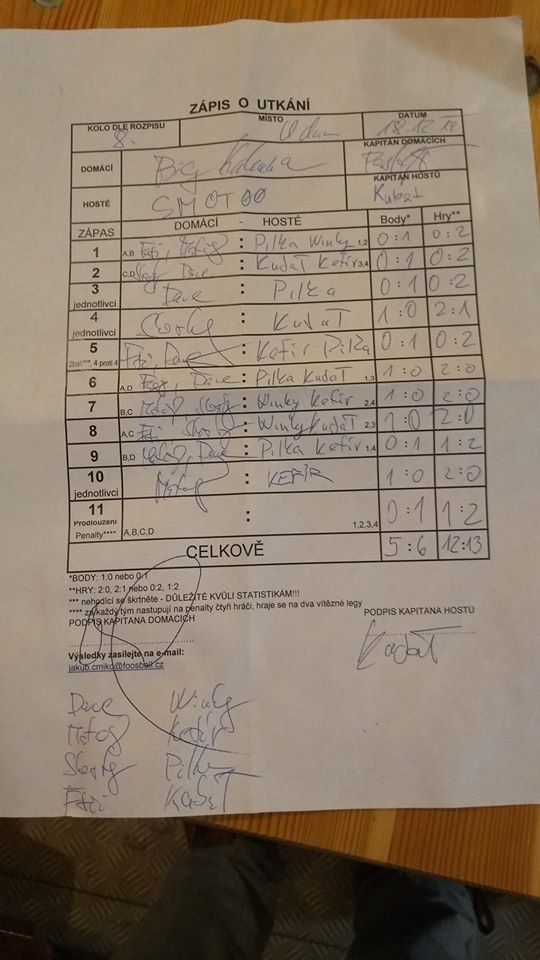 ZÁPIS O UTKÁNÍ
KOLO DLE ROZPISU MÍSTO DATUM
8. 18.12.18
DOMÁCÍ Big KAPITÁN DOMÁCÍCH
HOSTÉ SMOTOO KAPITÁN HOSTŮ
ZÁPAS DOMÁCÍ - HOSTÉ Body* Hry**
1 A,B : Pilka Winky 1,2 0:1 0:2
2 C,D Dave : Kudať Kefír 3,4 0:1 0:2
3 jednotlivci Dave : Pilka 0:1 0:2
4 jednotlivci : Kudať 1:0 2:1
5 2ball***, 4 proti 4 Dave : Kefír Pilka 0:1 0:2
6 A,D Dave : Pilka Kudať 1,3 1:0 2:0
7 B,C : Winky Kefír 2,4 1:0 2:0
8 A,C : Winky Kudať 2,3 1:0 2:0
9 B,D Dave : Pilka Kefír 1,4 0:1 1:2
10 jednotlivci : KEFÍR 1:0 2:0
11 Prodloužení Penalty**** A,B,C,D : 1,2,3,4 0:1 1:2
CELKOVĚ 5:6 12:13
*BODY: 1:0 nebo 0:1
**HRY: 2:0, 2:1 nebo 0:2, 1:2
*** nehodící se škrtněte - DŮLEŽITÉ KVŮLI STATISTIKÁM!!!
**** za každý tým nastupují na penalty čtyři hráči, hraje se na dva vítězné legy
PODPIS KAPITÁNA DOMÁCÍCH PODPIS KAPITÁNA HOSTŮ
Kudať
Výsledky zasílejte na e-mail:
jakub.cmiko@foosball.cz
Dave Winky
Kefír
Pilka
Kudať